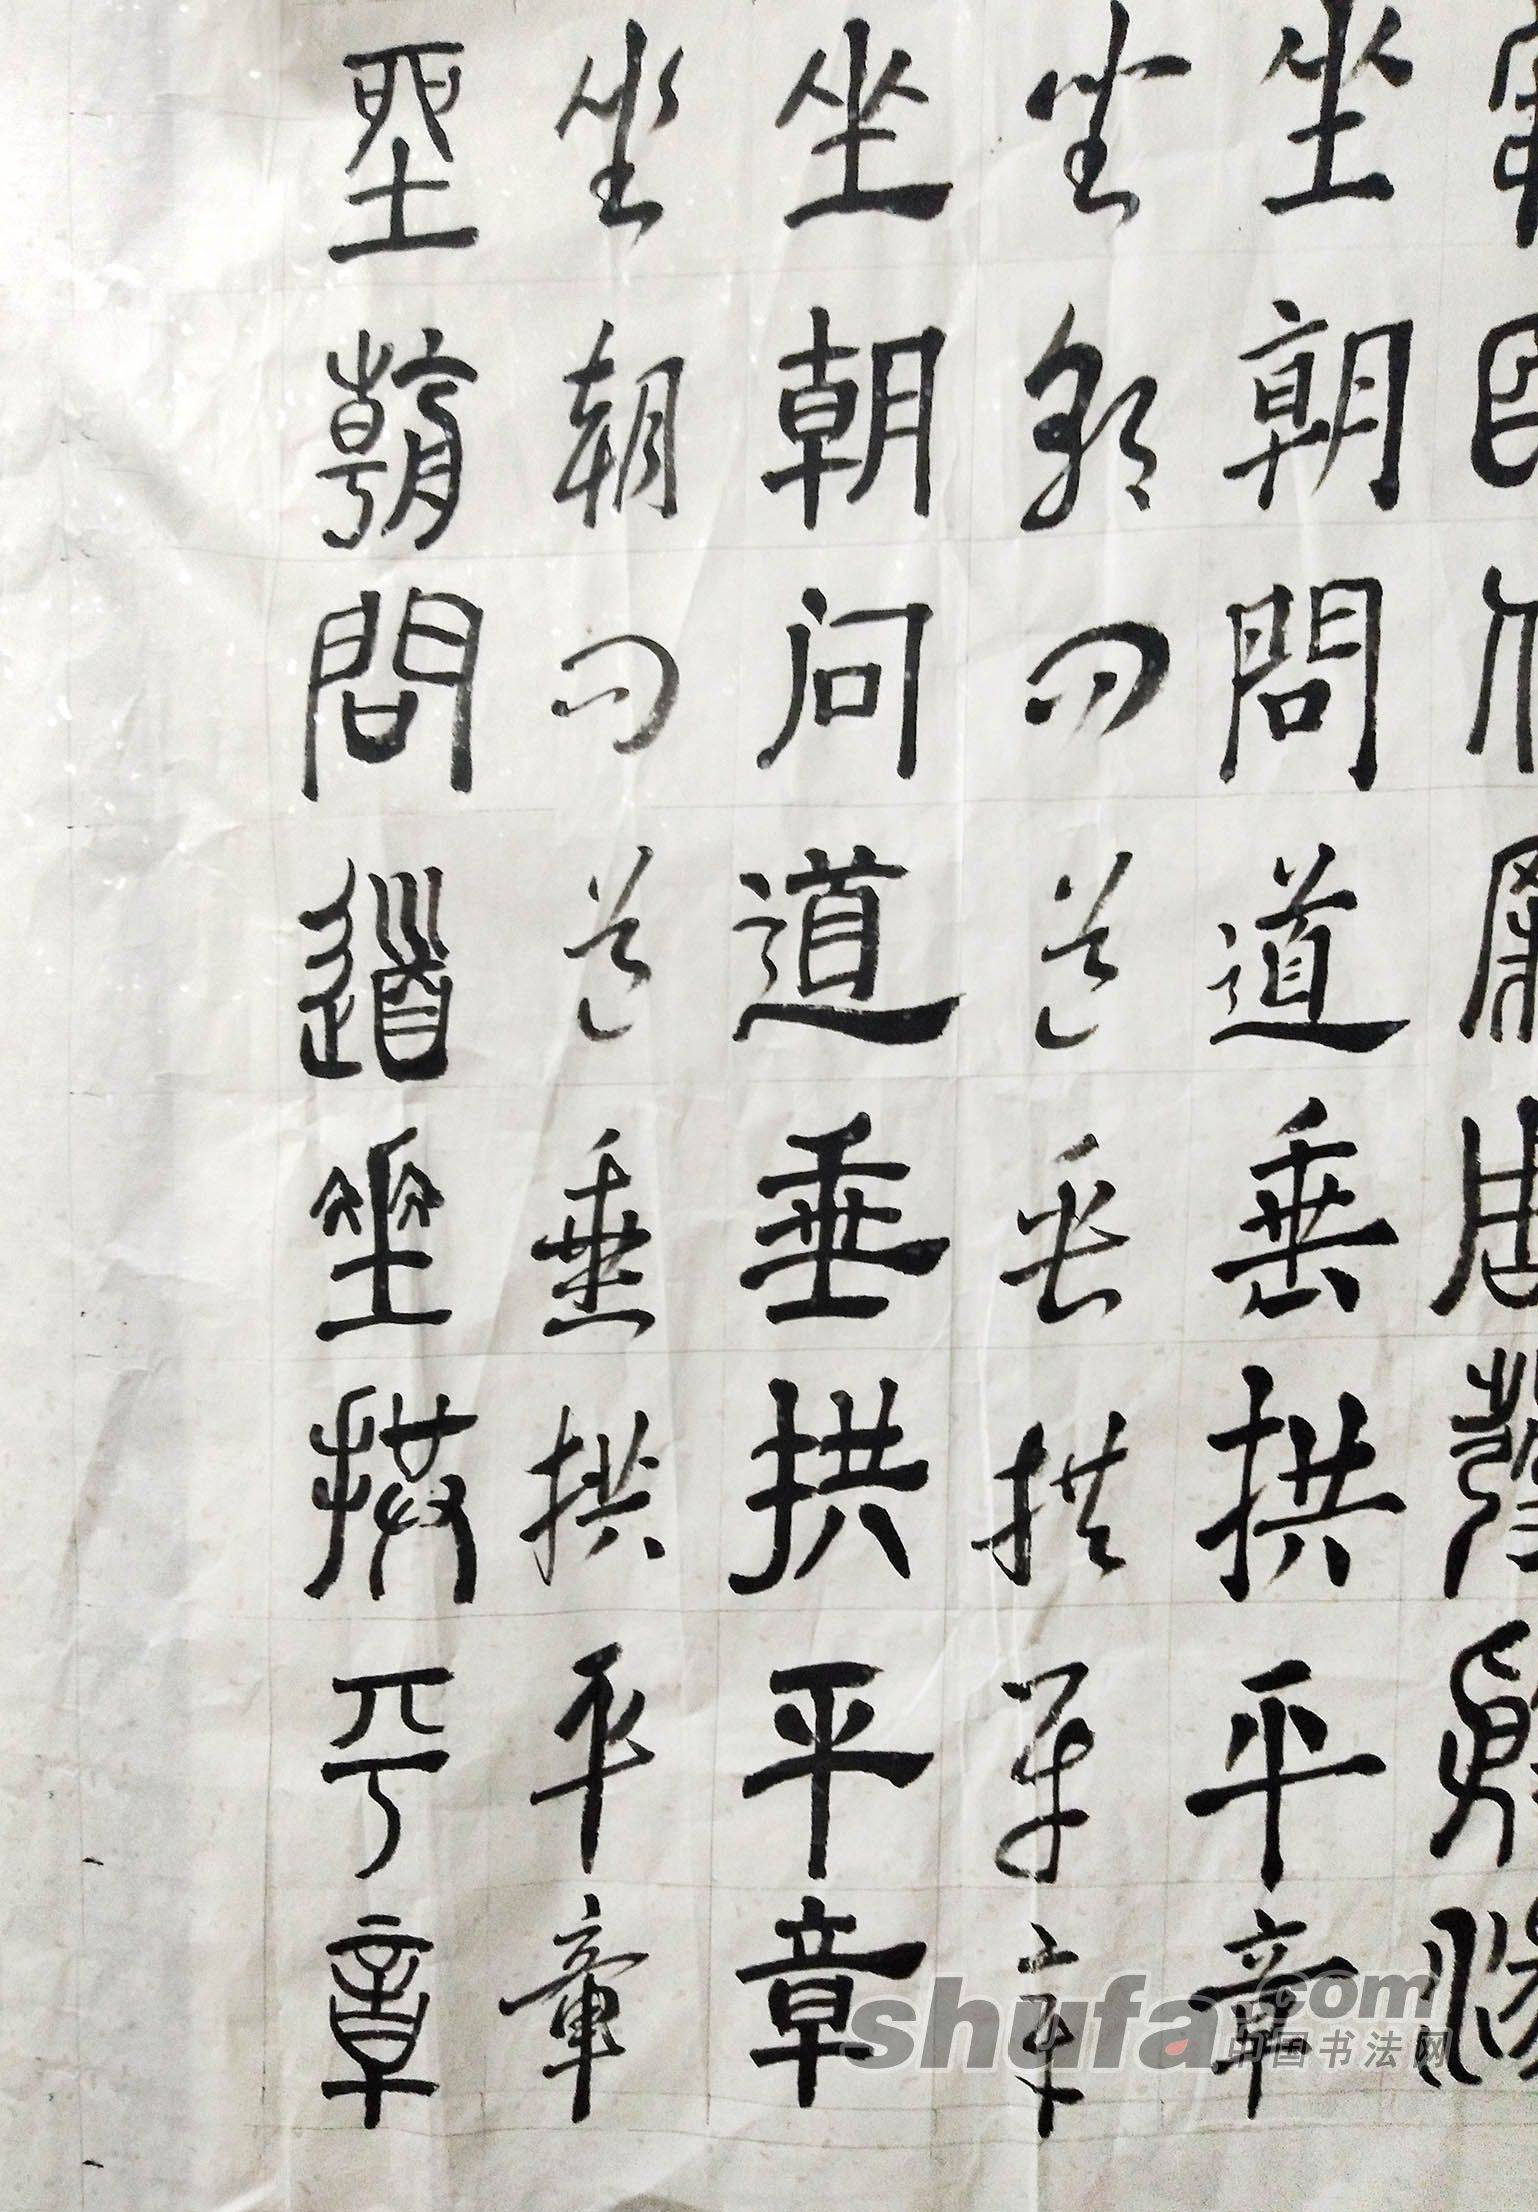 坐朝問道垂拱平章
坐朝问道垂拱平章
坐朝问道垂拱平章
坐朝问道垂拱平章
坐朝問道垂拱平章
shufa.com
中国书法网